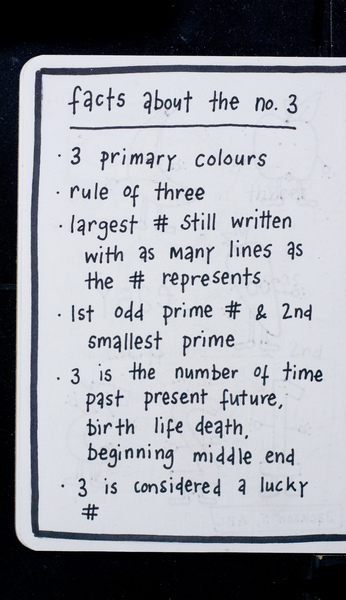 facts about the no. 3
· 3 primary colours
· rule of three
· largest # still written
with as many lines as
the # represents
· 1st odd prime # & 2nd
smallest prime
· 3 is the number of time
past present future,
birth life death,
beginning middle end
· 3 is considered a lucky
#